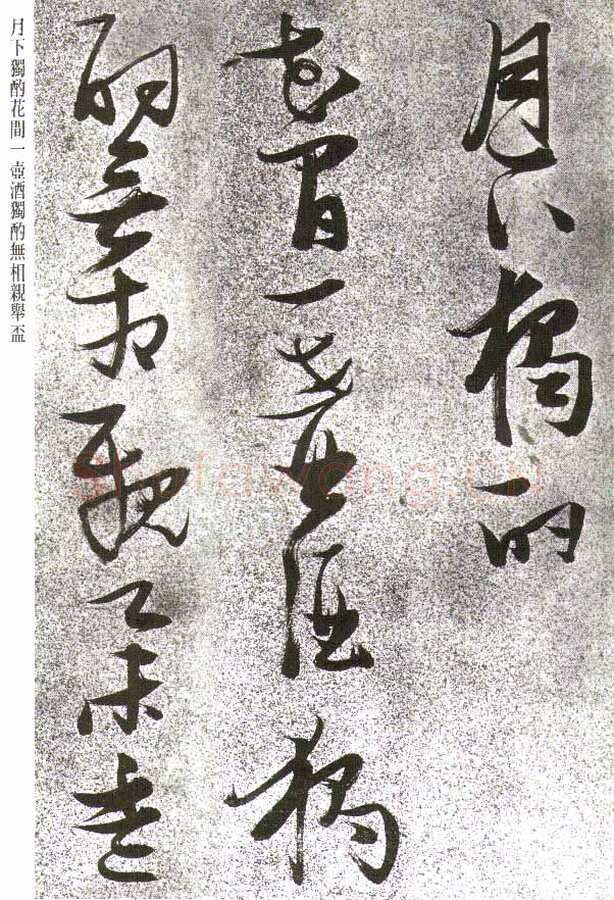 月下獨酌
花間一壺酒獨
酌無相親舉杯
月下獨酌花間一壺酒獨酌無相親舉盃